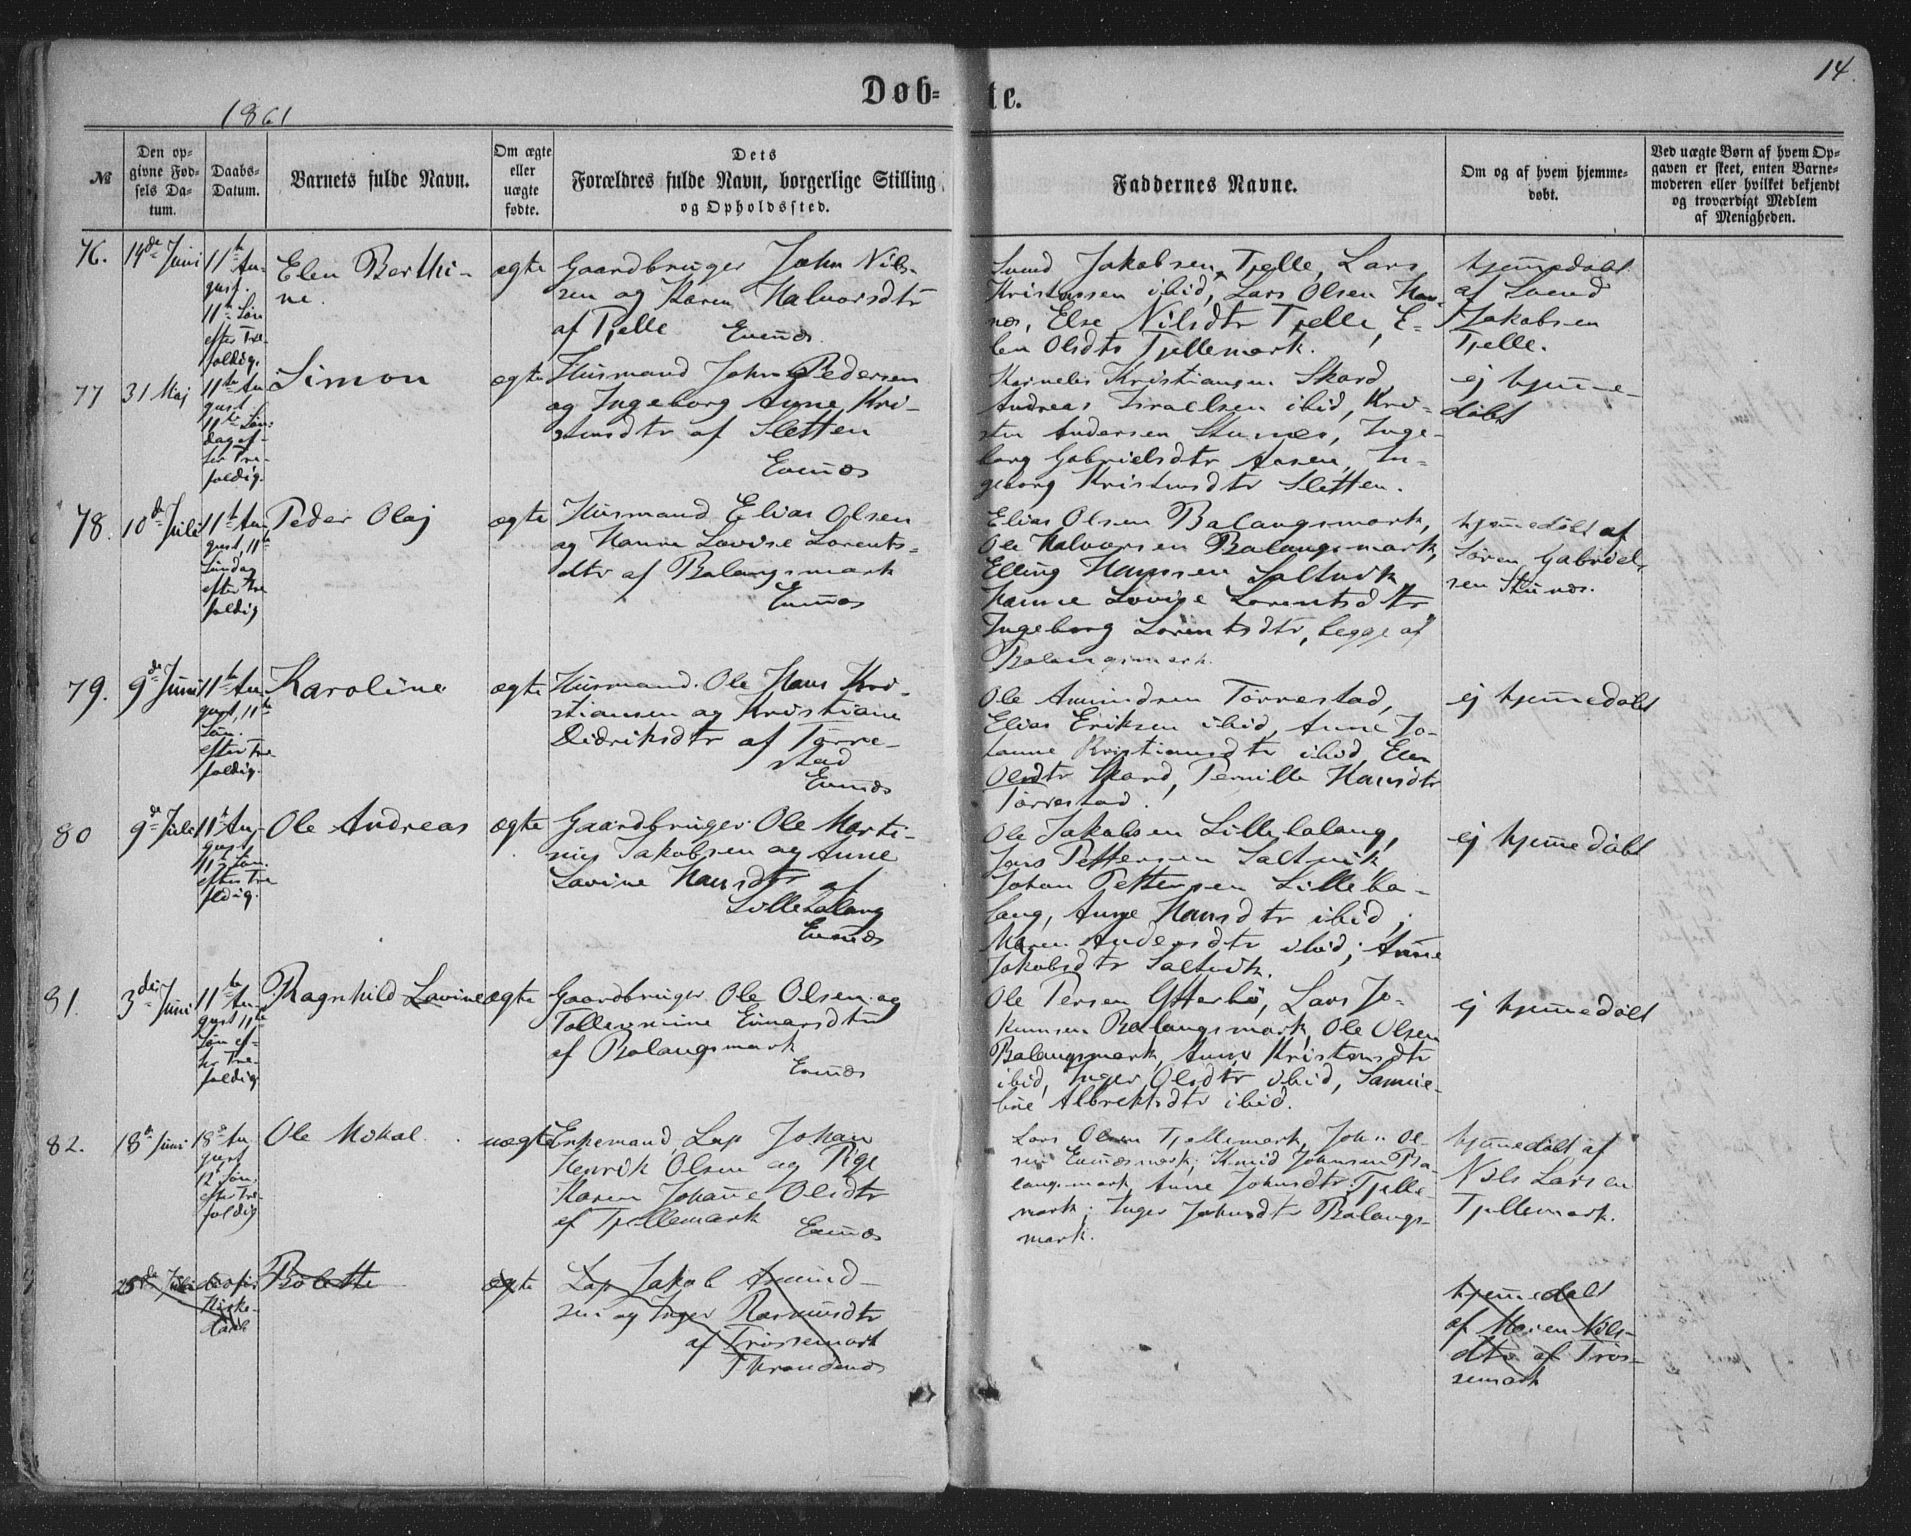 14.
Døb-
te.
1861
№
Den op-
givne Fød-
sels Da-
tum.
Daabs-
Datum.
Barnets fulde Navn.
Om ægte
eller
uægte
fødte.
Dets
Forældres fulde Navn, borgerlige Stilling
og Opholdssted.
Faddernes Navne.
Om og af hvem hjemme-
døbt.
Ved uægte Børn af hvem Op-
gaven er skeet, enten Barne-
moderen eller hvilket bekjendt
og troværdigt Medlem
af Menigheden.
76.
14de Juni
11te Au-
gust.
11te Søn
efter Tre
foldig.
Elen Berthi-
ne.
ægte
Gaardbruger John Nils-
sen og Karen Halvorsdtr
af Tjelle
Evenæs
Svend Jakobsen Tjelle, Lars
Kristensen ibid, Lars Olsen
Else Nilsdtr Tjelle, E-
len Olsdtr Tjellemark.
hjemmedøbt
af Svend
Jakobsen
Tjelle.
77
31 Maj
11te Au
gust
11te Søn:
dag ef-
ter Tre-
foldig.
Simon
ægte
Husmand John Pedersen
og Ingeborg Anne Kri-
stensdtr af Sletten
Evenæs
Kornelis Kristiansen Skard,
Andreas Israelsen ibid, Kri-
sten Andersen Stunes, Inge-
borg Gabrielsdtr Aasen, In-
geborg Kristensdtr Sletten.
ej hjemme-
døbt
78.
10de Juli
11te Au
gust, 11te
Søndag
efter Tre
foldig
Peder Olaj
ægte
Husmand Elias Olsen
og Hanna Lovise Lorents-
dtr af Balangsmark
Evenæs
Elias Olsen Balangsmark,
Ole Halvorsen Balangsmark,
Elling Hanssen Saltvik
Hanne Lovise Lorentsdtr
Ingeborg Lorentsdtr, begge af
Balangsmark.
hjemmedøbt af
Søren Gabriel-
sen Stunes.
79.
9de Juni
11te Au
gust, 11te
Søn.
efter Tre
foldig.
Karoline
ægte
Husmand Ole Hans Kri-
stiansen og Kristiane
Didriksdtr af Tørre-
stad
Evenæs
Ole Amundsen Tørrestad,
Elias Eriksen ibid, Anne Jo-
hanne Kristiansdtr ibid, Elen
Olsdtr Skard, Pernille Hansdtr
Tørrestad.
ej hjemmedøbt
80
9de Juli
11te Au-
gust
11te Søn.
efter Tre
foldig.
Ole Andreas
ægte
Gaardbruger Ole Marti-
nus Jakobsen og Anne
Lovine Hansdtr af
Lillebalang
Evenæs
Ole Jakobsen Lillebalang,
Jens Pettersen Saltvik,
Johan Pettersen Lilleba-
lang, Anne Hansdtr ibid;
Maren Andersdtr ibid; Anne
Jakobsdtr Saltvik.
ej hjemmedøbt
81.
3die Juni
11te Au
gust 11te
Søn ef-
ter Tre-
foldig
Ragnhild Lovine
ægte
Gaardbruger Ole Olsen og
Tollevmine Einarsdtr
af Balangsmark
Evenæs
Ole Persen Ytterbø, Lars Jo-
kumsen Balangsmark, Ole Olsen
Balangsmark, Anne Kristensdtr
ibid, Inger Olsdtr ibid,
Albrektsdtr ibid.
ej hjemmedøbt
82.
18de Juni
18de Au
gust
12te Søn:
efter Tre-
foldig
Ole Mikal.
uægte
Enkemand Lap Johan
Henrik Olsen og Pige
Karen Johanne Olsdtr
af Tjellemark
Evenæs
Lars Olsen Tjellemark, John Ol-
sen Evenæsmark; Knud Johnsen Ba-
langsmark, Anne Johnsdtr Tjelle-
mark; Inger Johnsdtr Balangs-
mark.
hjemmedøbt af
Nils Larsen
Tjellemark.
25de Juli
Kirke-
daab
Bolette
ægte
Lap Jakob Amund-
sen og Inger Rasmusdtr
af Trøssemark
Throndenæs
hjemmedøbt
af Maren Nils-
dtr af Trøs-
semark